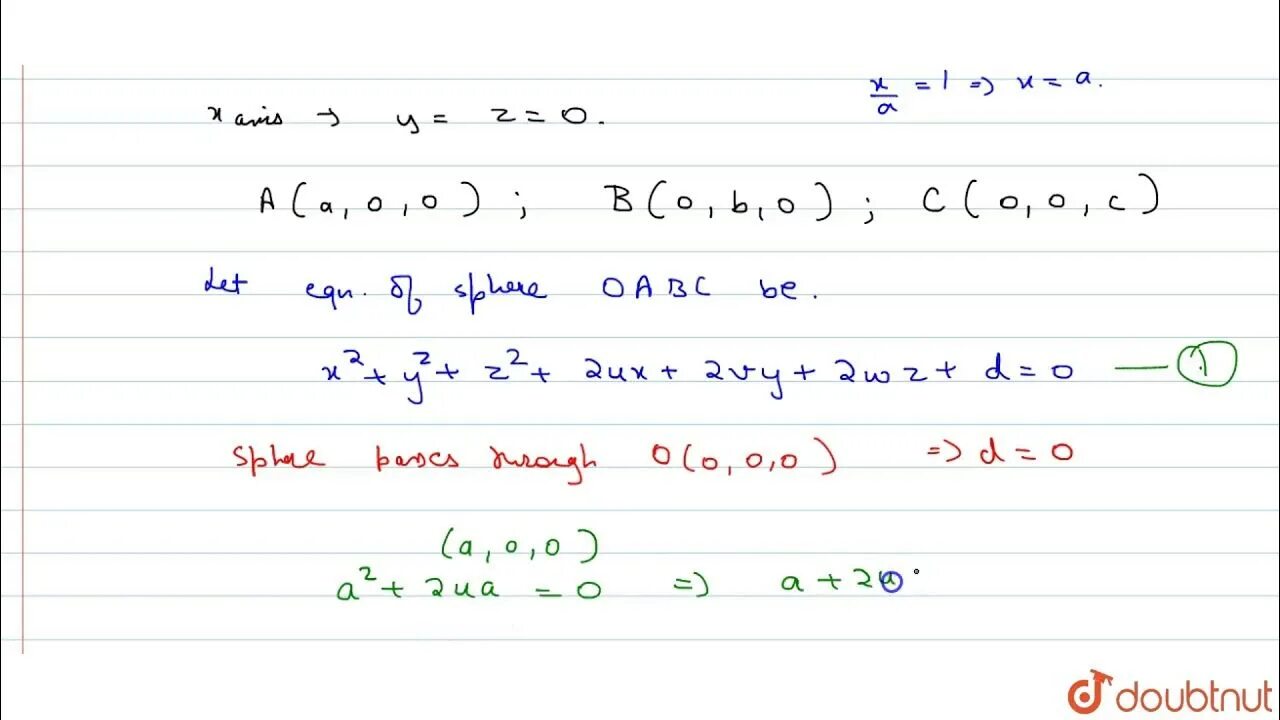 x/a = 1 => x = a.
x axis → y = z = 0.
A(a, 0, 0) ; B(0, b, 0) ; C(0, 0, c)
Let eqn. of sphere OABC be.
x² + y² + z² + 2ux + 2vy + 2wz + d = 0 — ①
Sphere passes through O(0, 0, 0) => d = 0
(a, 0, 0)
a² + 2ua = 0 => a + 2u
doubtnut